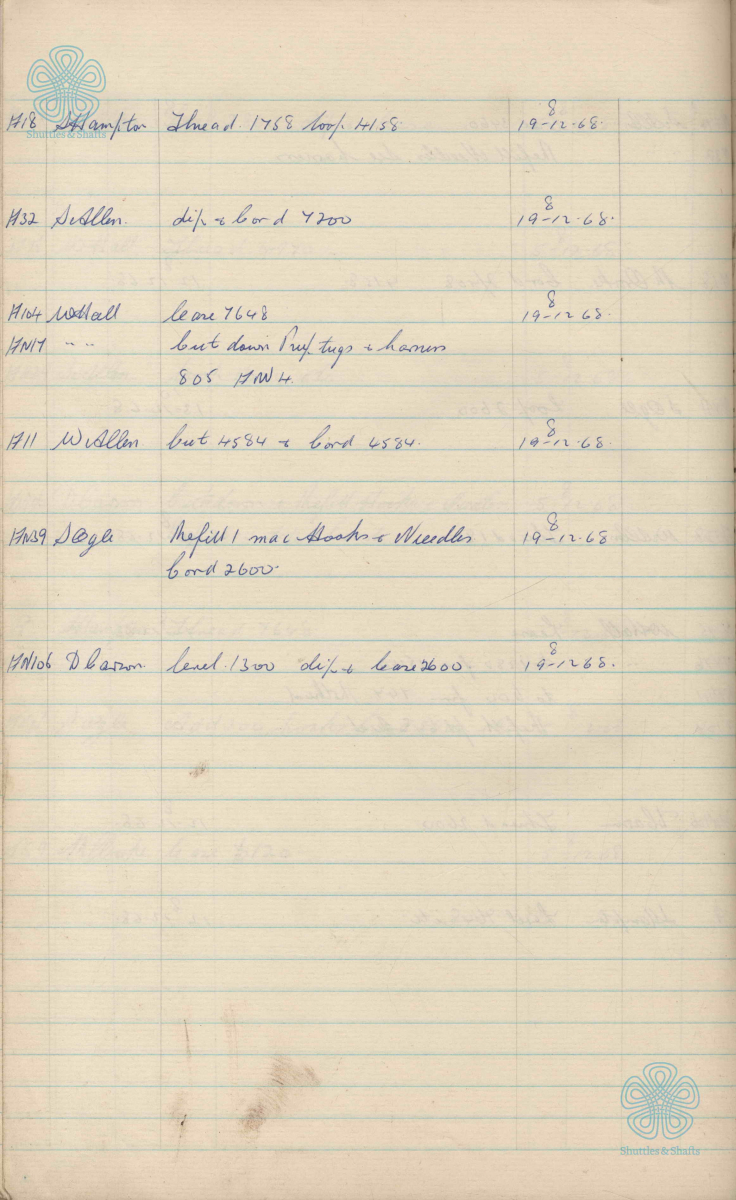 8
H18 S Hampton Thread. 1758 loop 4158 19-12-68.
Shuttles & Shafts
8
H32 S. Allen. dip & Cord 7200 19-12-68.
8
H104 W Hall lease 7648 19-12-68.
HN17 " " Cut down Prep, tugs & harness
805 HN 4.
8
H11 W. Allen. Cut 4584 & Cord 4584. 19-12-68.
8
HN39 S Bogle Refill 1 mac Hooks & Needles 19-12-68
Cord 2600.
8
HN106 D Carson. level. 1300 dip & lease 2600 19-12-68.
Shuttles & Shafts